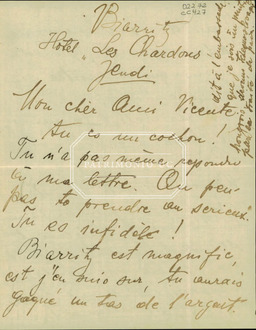 D272
CC427
Biarritz
Hotel "Les Chardons"
Jeudi
Mon cher Ami Vicente,
tu es un cochon!
Tu n'a pas même repondu
à ma lettre. On peu
pas te prendre au serieux.
Tu es infidèle!
Biarritz est magnific,
est j'en suis sur, tu aurais
gagné un tas de l'argent.
dit à l'embassade
que je suis